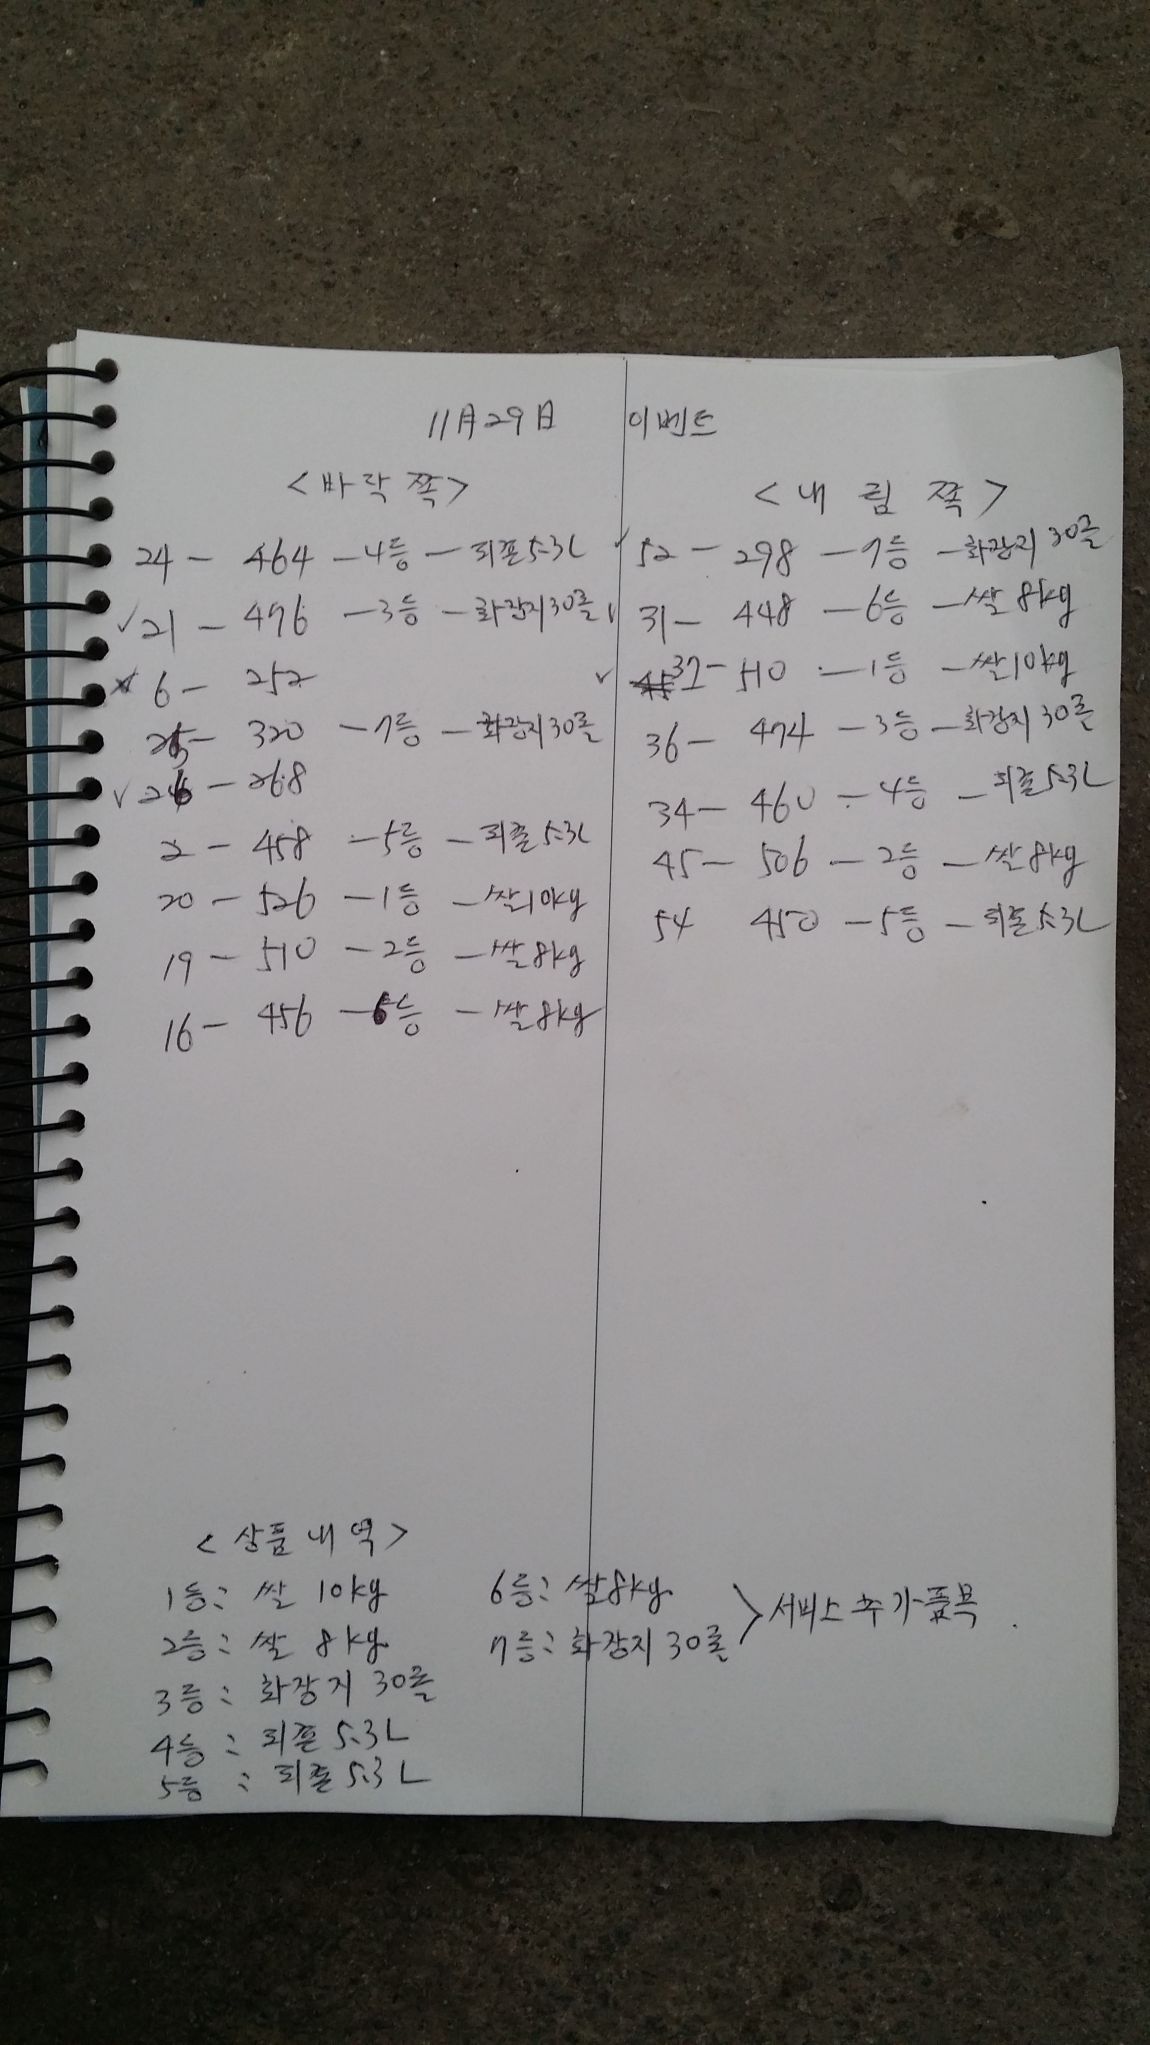 11月29日 이벤트
<바닥쪽>
24 - 464 - 4등 - 퍼폴 5.3L
✓ 21 - 476 - 3등 - 화장지 30롤
6 - 252
25 - 320 - 7등 - 화장지 30롤
✓ 26 - 268
2 - 458 - 5등 - 퍼폴 5.3L
20 - 526 - 1등 - 쌀 10kg
19 - 510 - 2등 - 쌀 8kg
16 - 456 - 6등 - 쌀 8kg
<내림쪽>
✓ 52 - 298 - 7등 - 화장지 30롤
✓ 31 - 448 - 6등 - 쌀 8kg
✓ 37 - 510 - 1등 - 쌀 10kg
36 - 474 - 3등 - 화장지 30롤
34 - 460 - 4등 - 퍼폴 5.3L
45 - 506 - 2등 - 쌀 8kg
54 450 - 5등 - 퍼폴 5.3L
<상품내역>
1등: 쌀 10kg
2등: 쌀 8kg
3등: 화장지 30롤
4등: 퍼폴 5.3L
5등: 퍼폴 5.3L
6등: 쌀 8kg
7등: 화장지 30롤
> 서비스 추가 품목